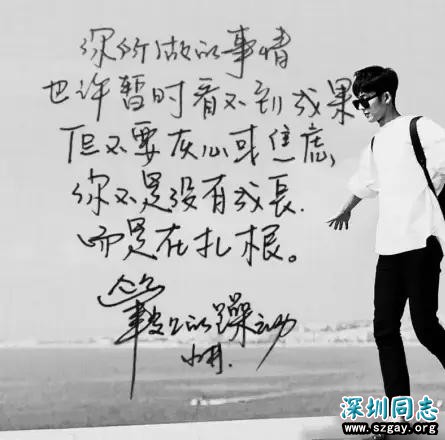 你所做的事情
也许暂时看不到成果
但不要灰心或焦虑，
你不是没有成长.
而是在扎根。
笔尖上的躁动
小明.
深圳同志
www.szgay.org